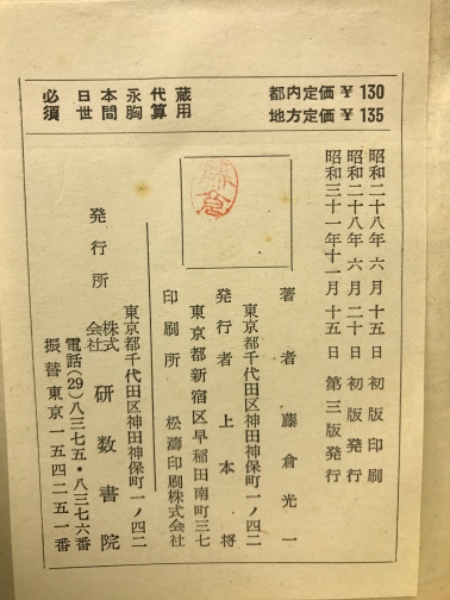 必 日本永代蔵 都内定価 ¥ 130
須 世間胸算用 地方定価 ¥ 135
昭和二十八年六月十五日 初版印刷
昭和二十八年六月二十日 初版発行
昭和三十一年十一月十五日 第三版発行
著者 藤倉光一
東京都千代田区神田神保町一ノ四二
発行者 上本将
東京都新宿区早稲田南町三七
印刷所 松濤印刷株式会社
東京都千代田区神田神保町一ノ四二
発行所 株式会社 研数書院
電話(29)八三七五・八三七六番
振替東京一五四二五一番